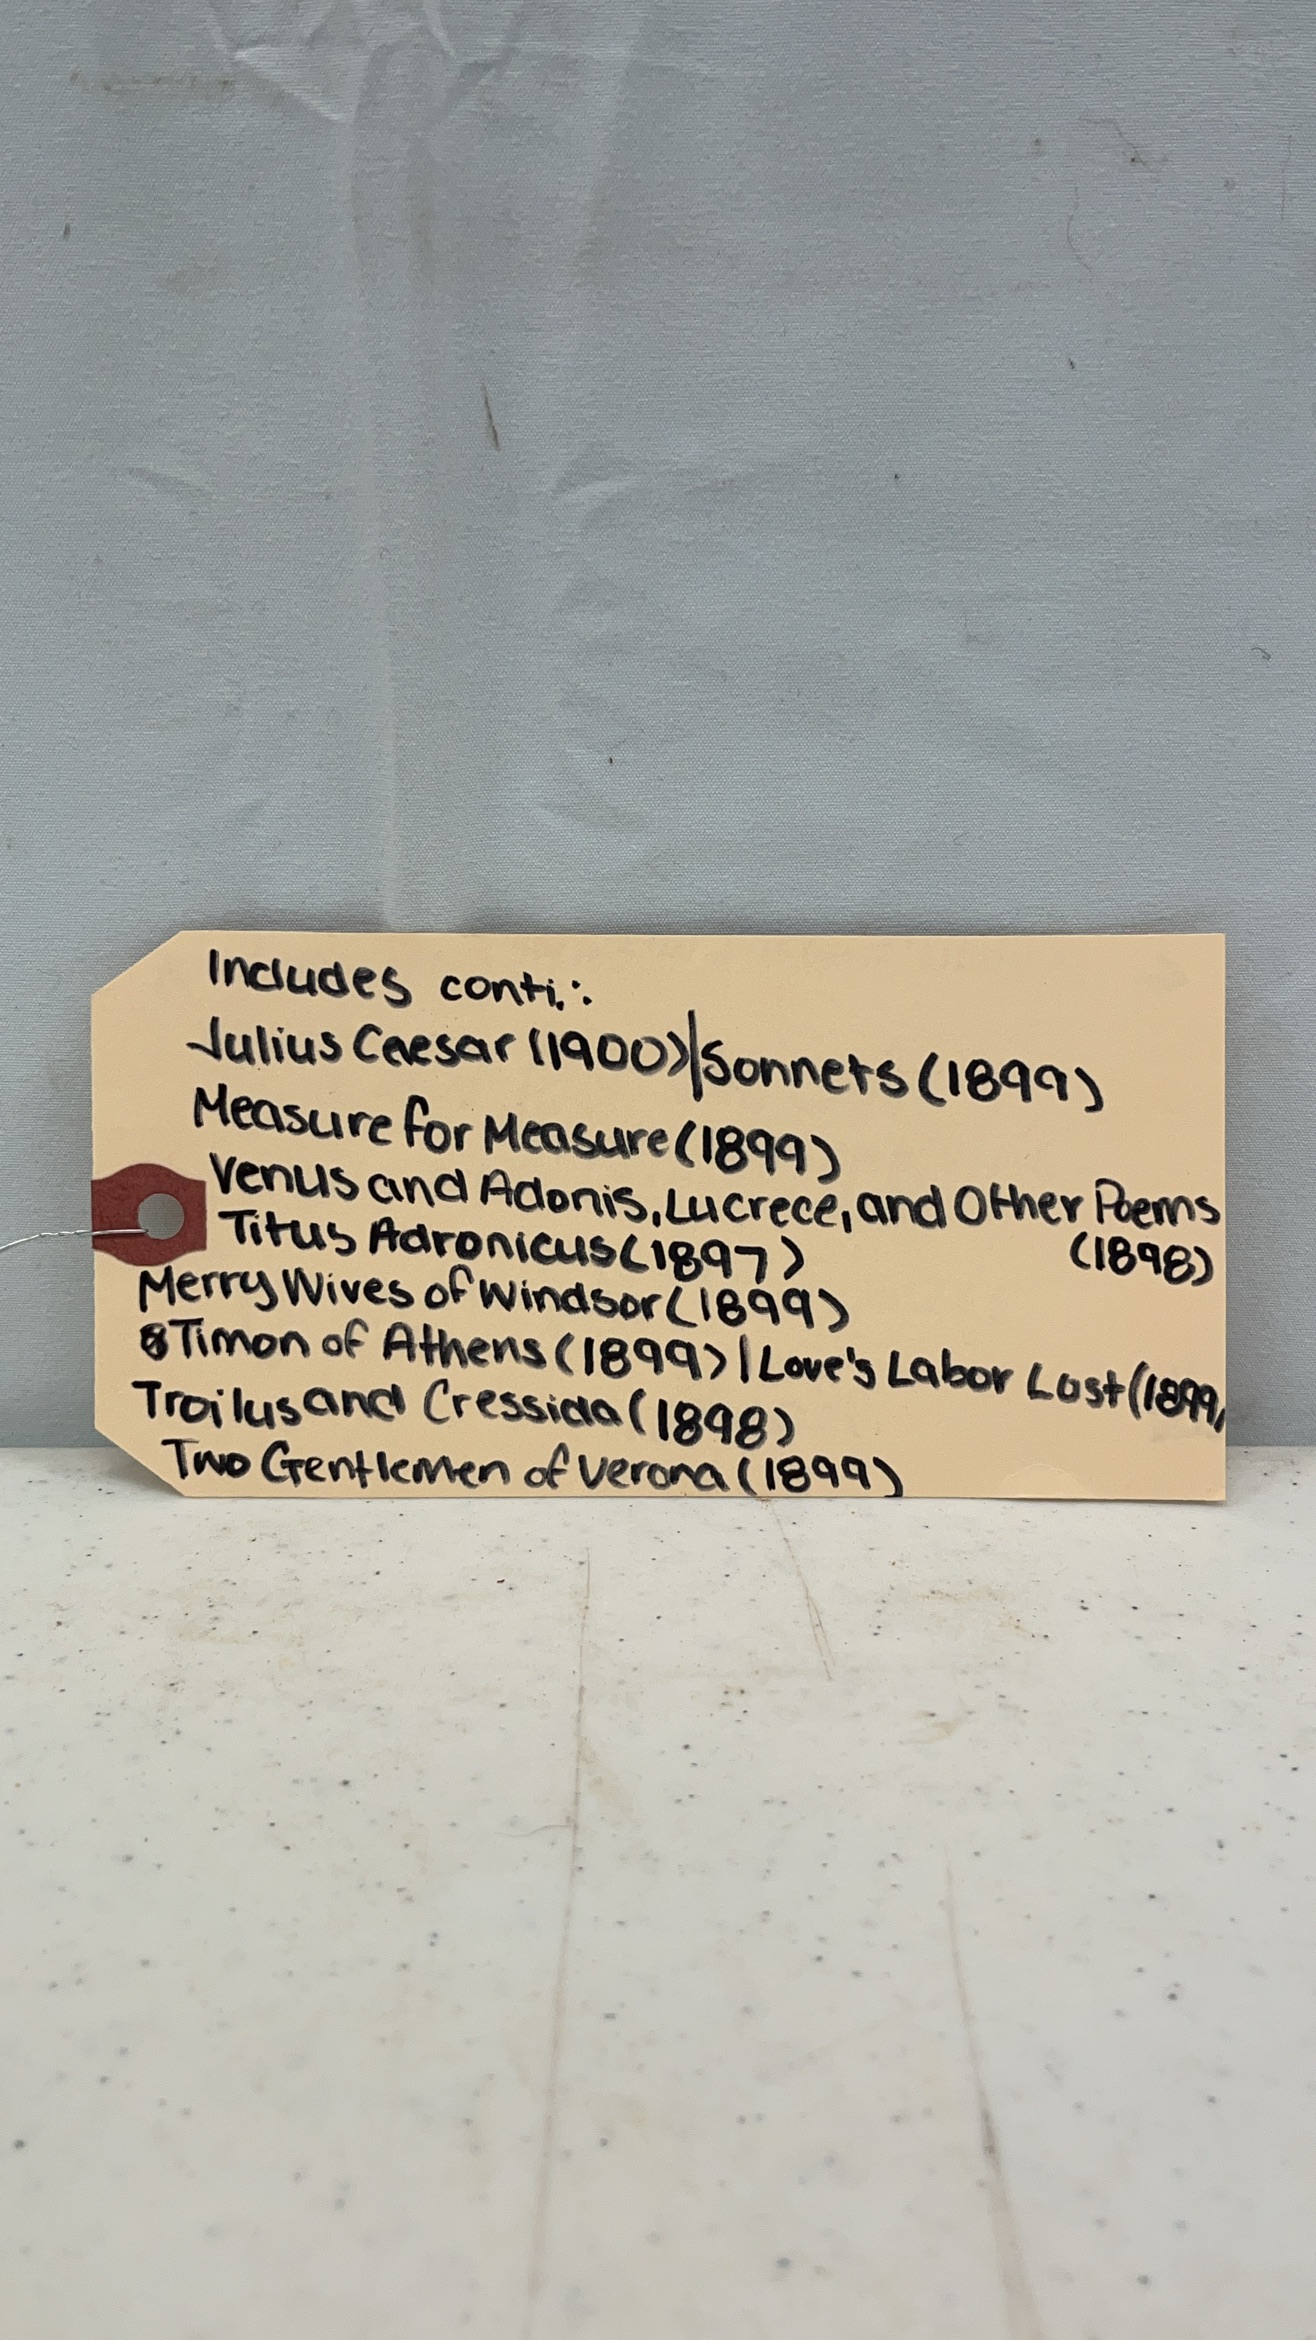 Includes conti.:
Julius Caesar (1900)|Sonnets (1899)
Measure for Measure (1899)
Venus and Adonis, Lucrece, and Other Poems
(1898)
Titus Adronicus (1897)
Merry Wives of Windsor (1899)
Timon of Athens (1899) | Love's Labor Lost (1899)
Troilus and Cressida (1898)
Two Gentlemen of Verona (1899)